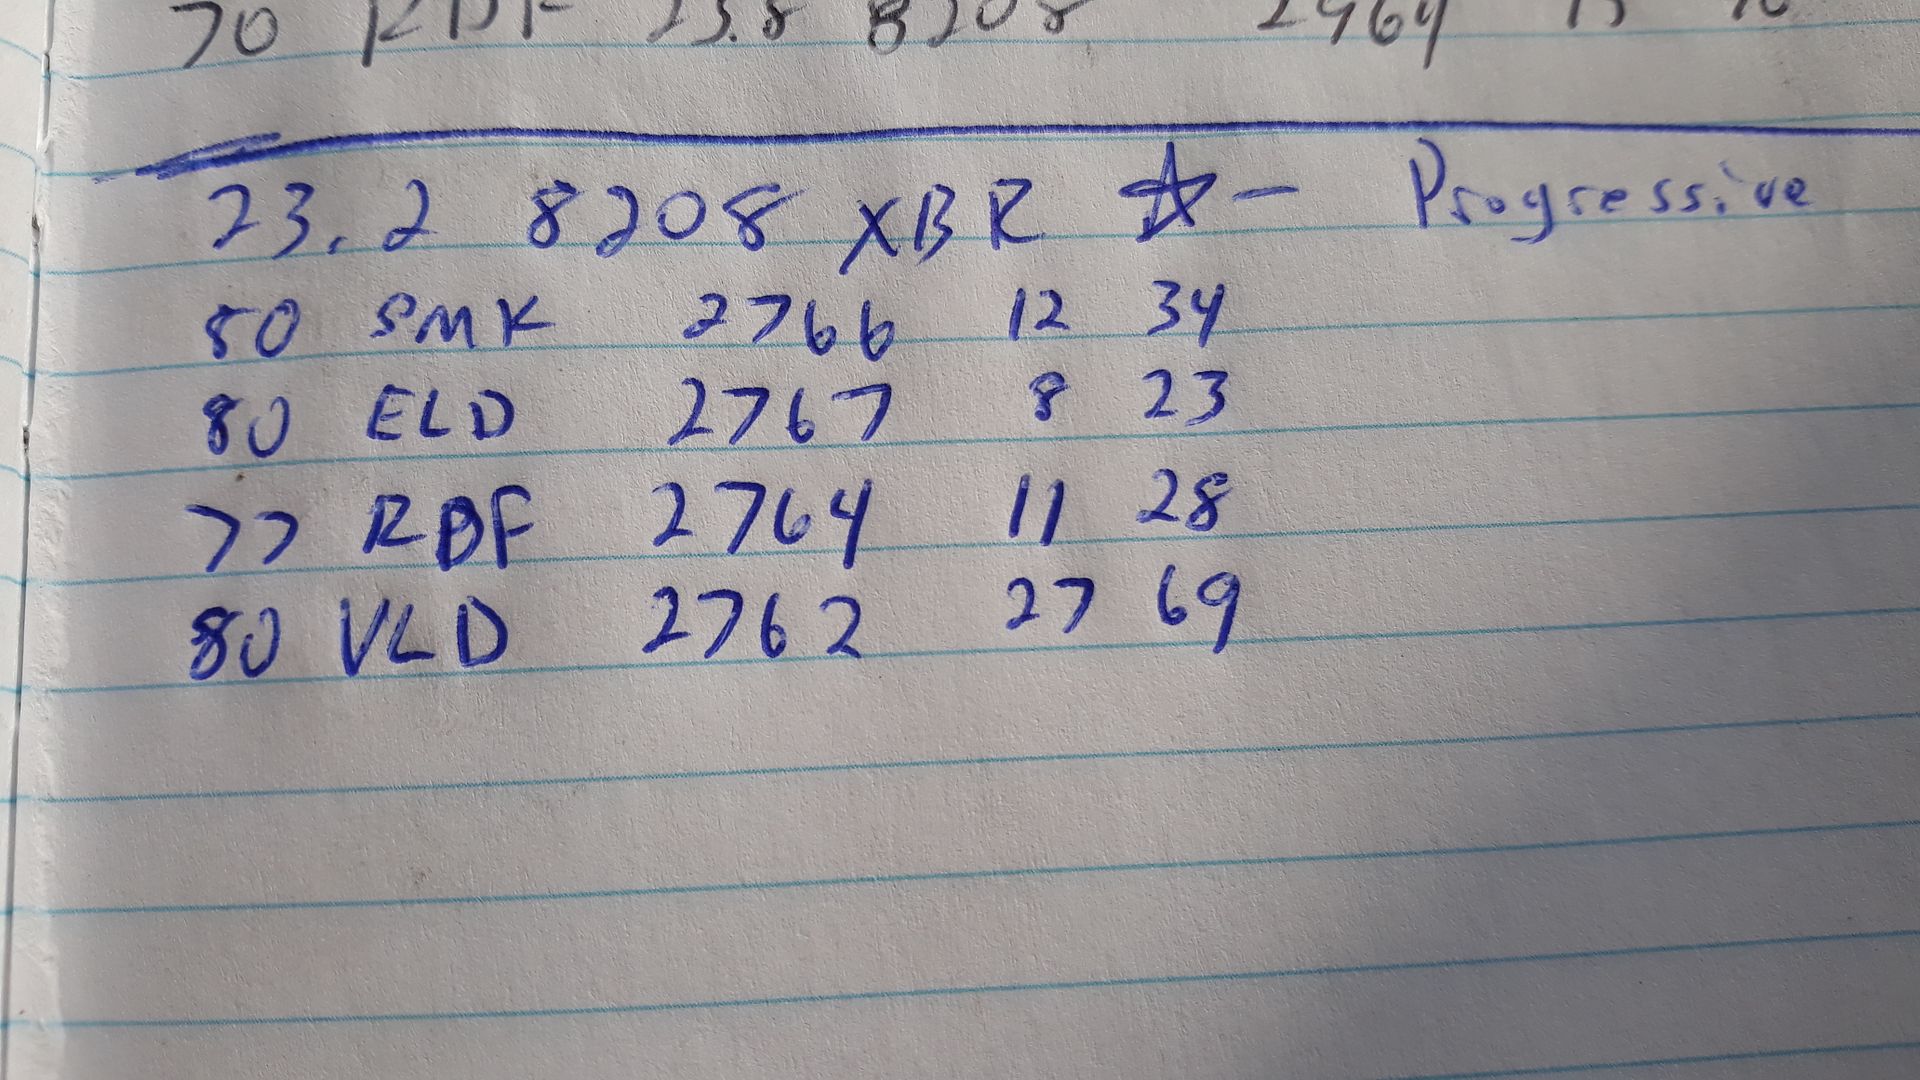 70 RBF 23.8 8208 2964
23.2 8208 XBR ☆- Progressive
50 SMK 2766 12 34
80 ELD 2767 8 23
77 RBF 2764 11 28
80 VLD 2762 27 69